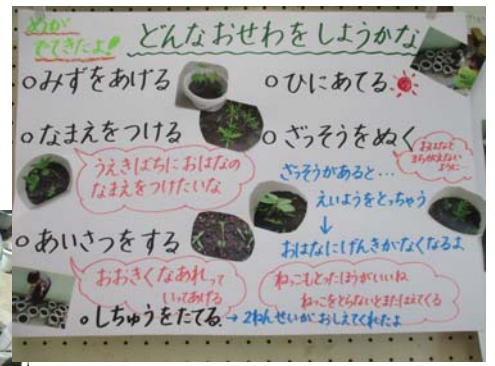 めが
でてきたよ!
どんなおせわをしようかな
○みずをあげる
○ひにあてる
○なまえをつける
うえきばちにおはなの
なまえをつけたいな
○ざっそうをぬく
おはなと
まちがえない
ように
ざっそうがあると…
えいようをとっちゃう
↓
おはなにげんきがなくなるよ
○あいさつをする
おおきくなあれって
いってあげる
ねっこもとったほうがいいね
ねっこをとらないとまたはえてくる
○しちゅうをたてる→2ねんせいがおしえてくれたよ